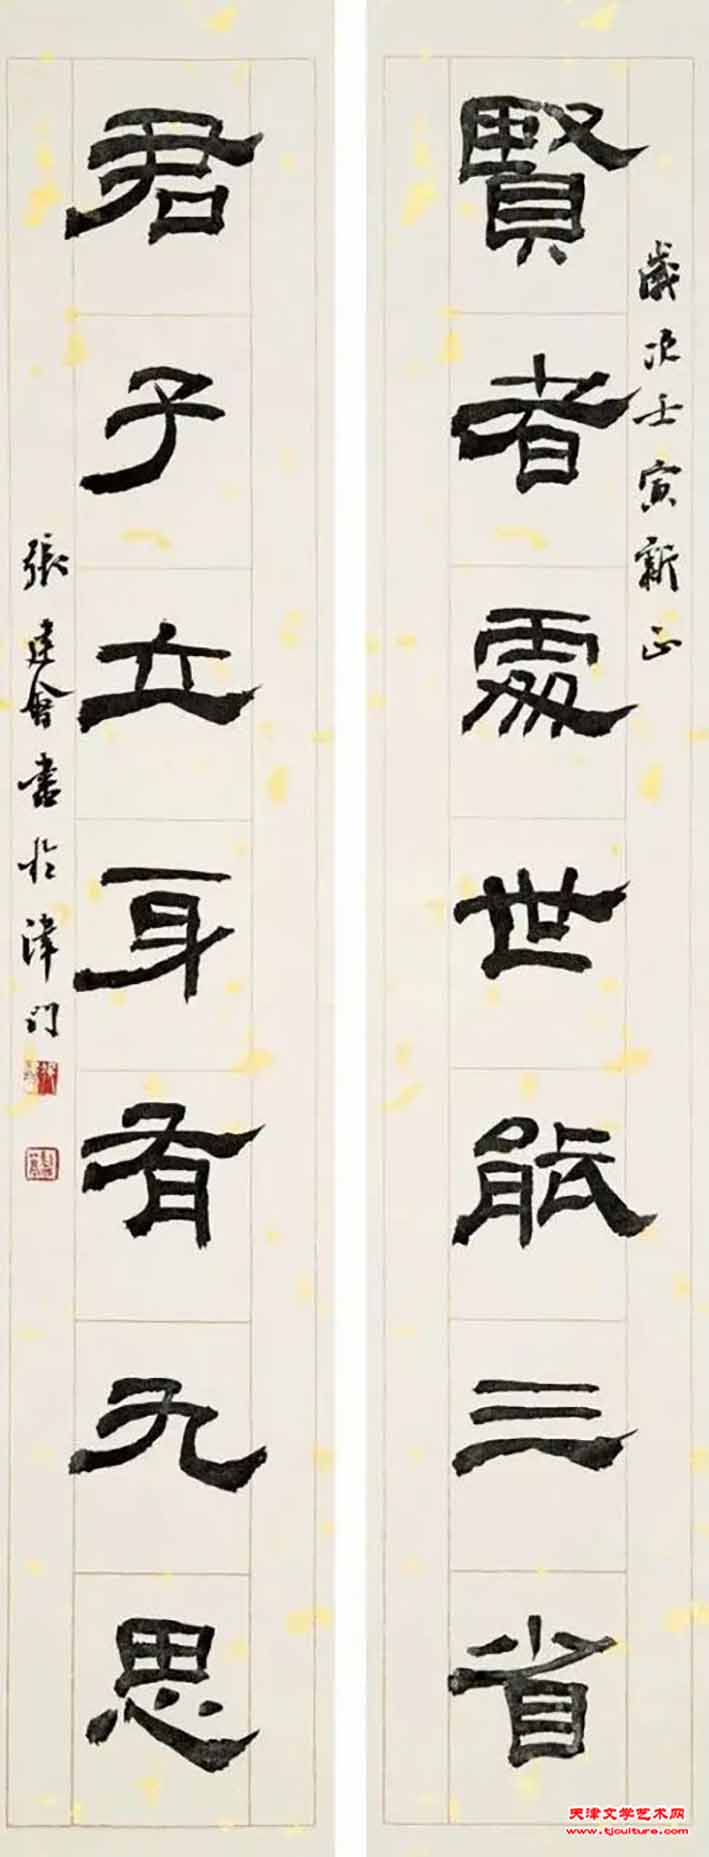 歲次壬寅新正
賢者處世能三省
君子立身有九思
張建會書於津門
天津文学艺术网
www.tjculture.com